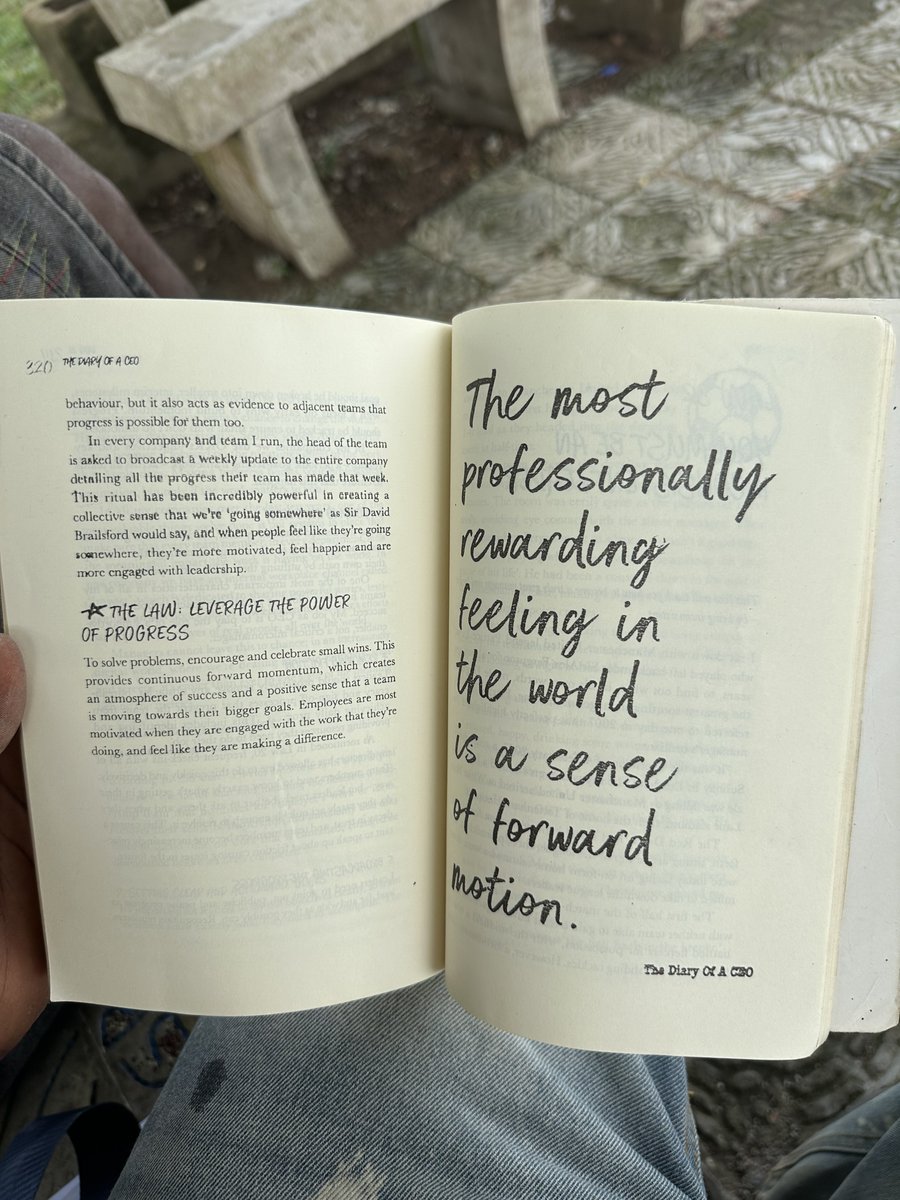 320 THE DIARY OF A CEO
behaviour, but it also acts as evidence to adjacent teams that
progress is possible for them too.
In every company and team I run, the head of the team
is asked to broadcast a weekly update to the entire company
detailing all the progress their team has made that week.
This ritual has been incredibly powerful in creating a
collective sense that we're 'going somewhere' as Sir David
Brailsford would say, and when people feel like they're going
somewhere, they're more motivated, feel happier and are
more engaged with leadership.
THE LAW: LEVERAGE THE POWER
OF PROGRESS
To solve problems, encourage and celebrate small wins. This
provides continuous forward momentum, which creates
an atmosphere of success and a positive sense that a team
is moving towards their bigger goals. Employees are most
motivated when they are engaged with the work that they're
doing, and feel like they are making a difference.
The most
professionally
rewarding
feeling in
the world
is a sense
of forward
motion.
The Diary Of A CEO